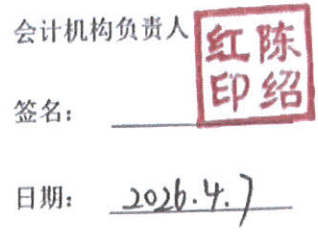 会计机构负责人
陈绍红印
签名：
日期： 2026.4.7